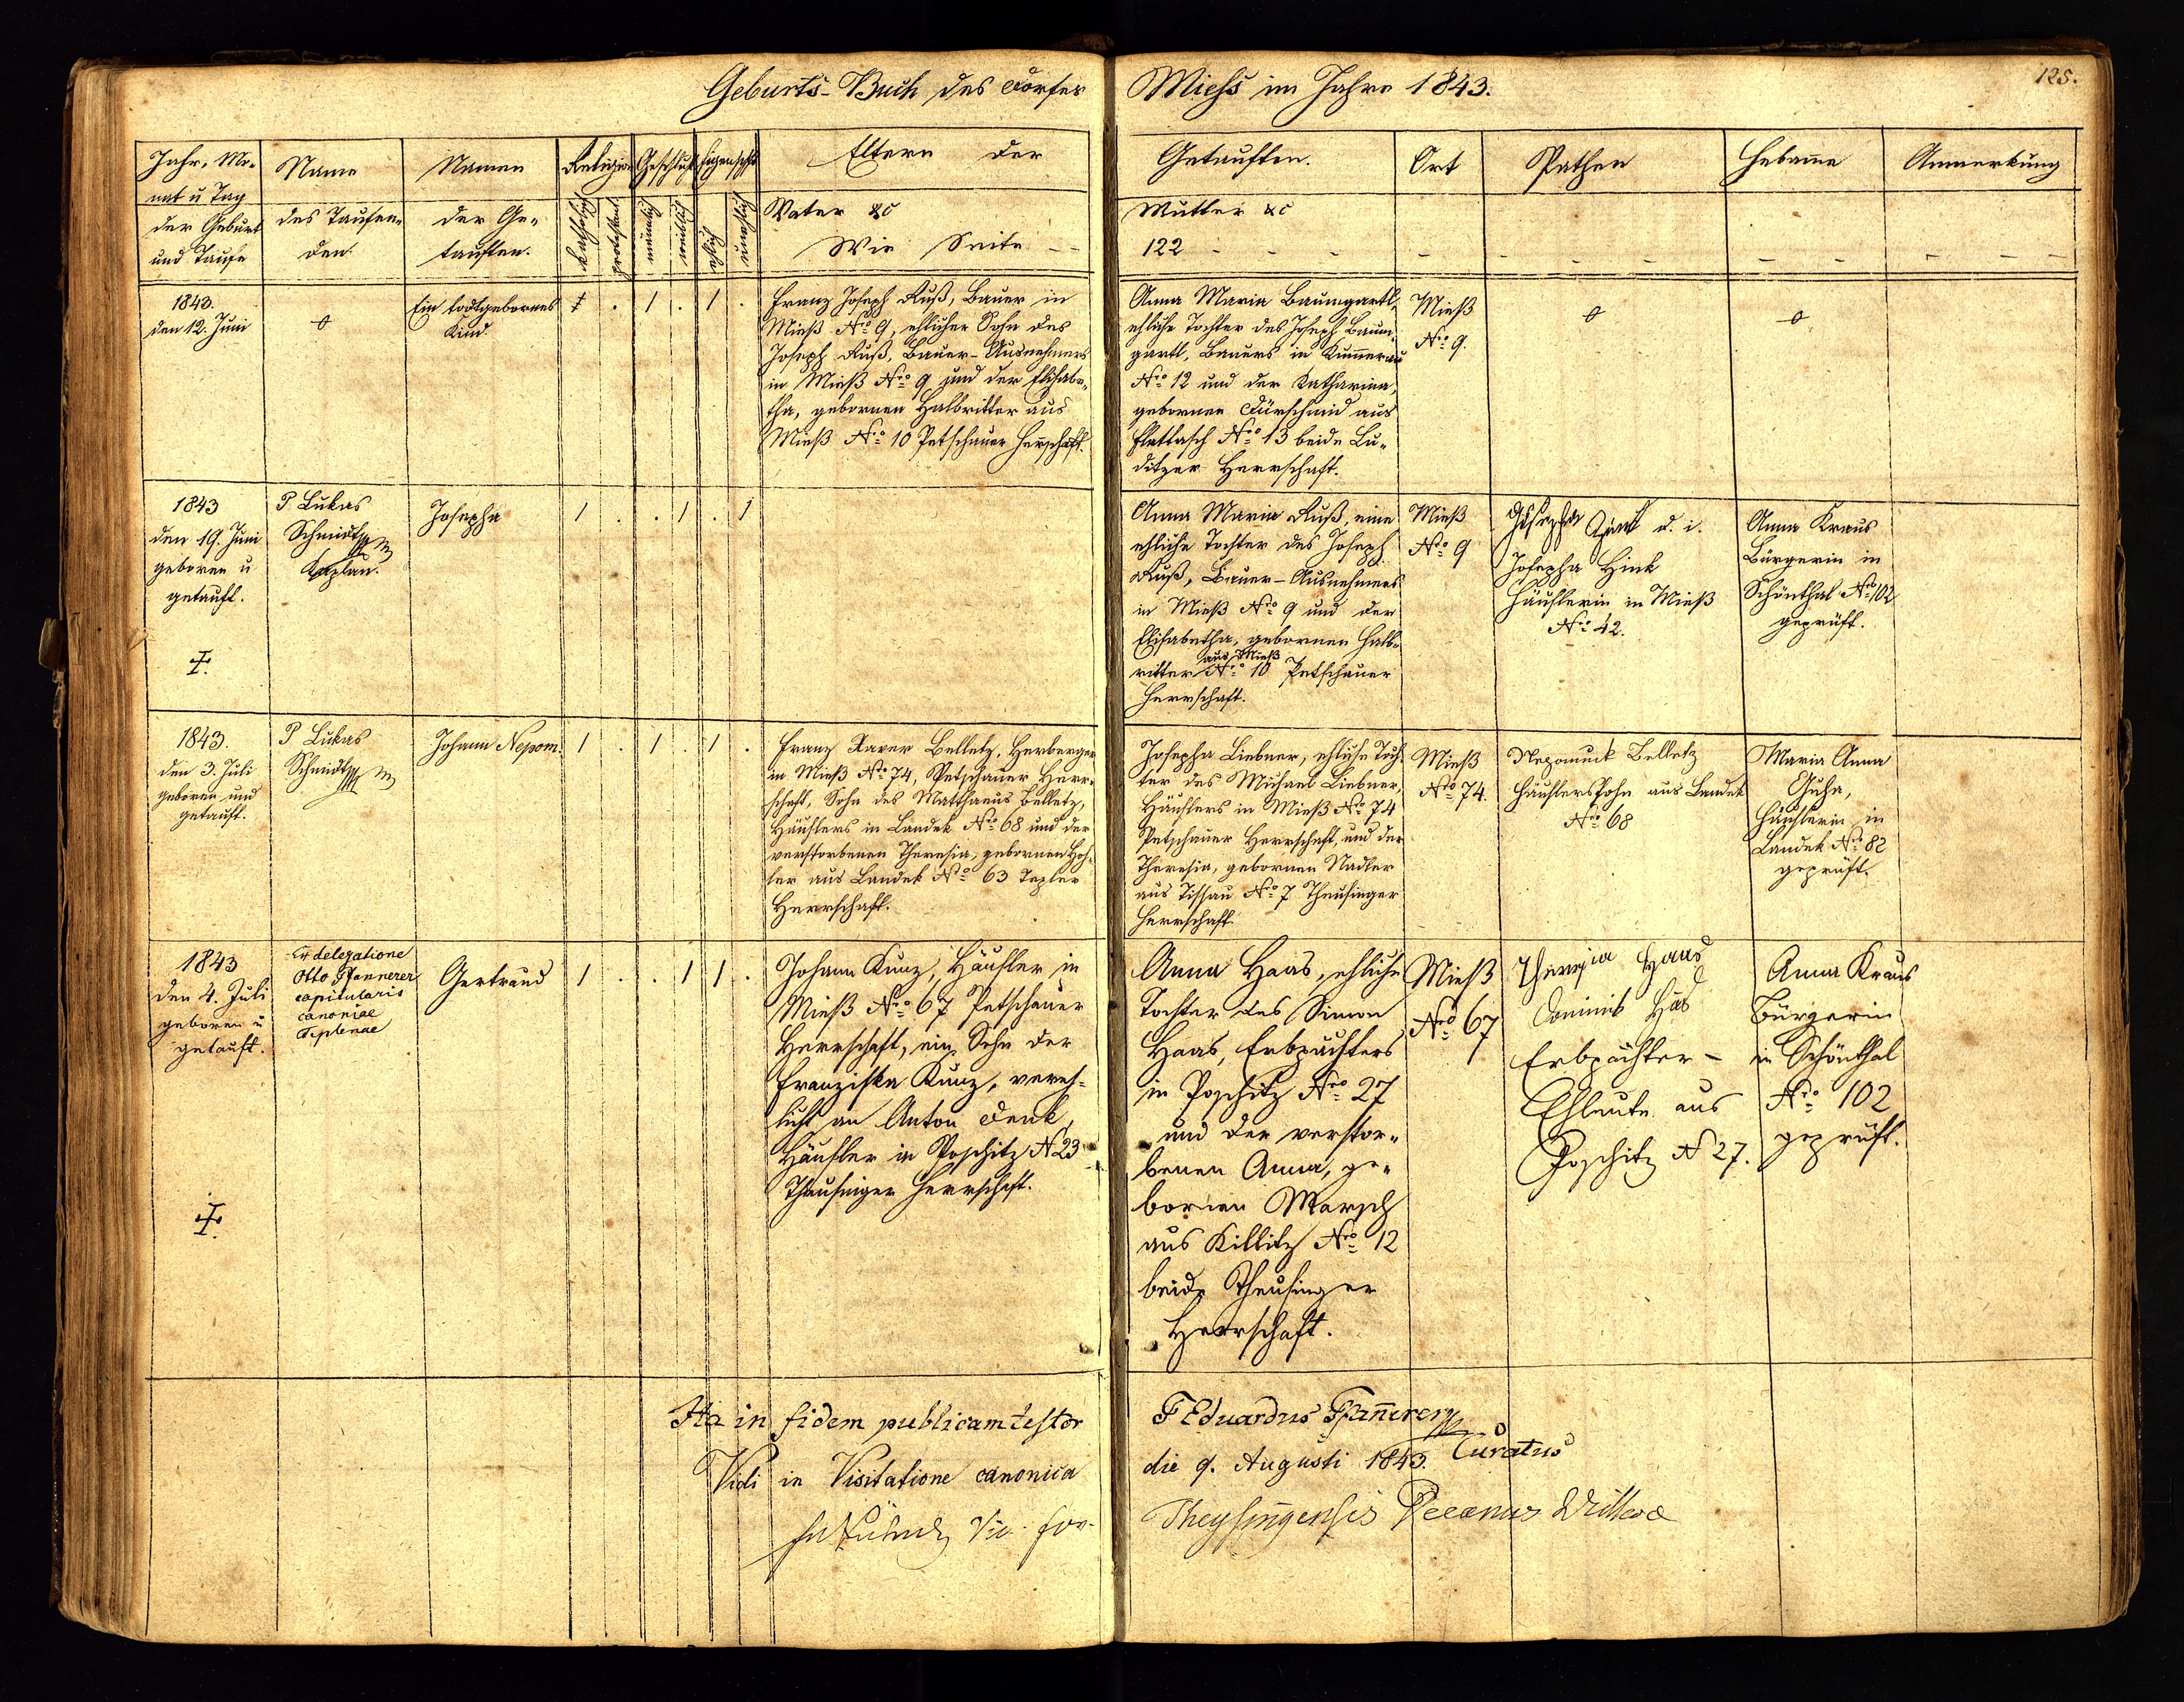 Geburts-Buch des Dorfes Miess im Jahre 1843.
125.
Jahr, Mo-
nat u Tag
der Geburt
und Taufe
Name
des Taufen-
den.
Namen
der Ge-
tauften.
Religion
katholisch
protestant
Geschlecht
männlich
weiblich
Eigenschft
ehlich
unehlich
Eltern der
Vater &c
Wie Seite
Getauften.
Mutter &c
122
Ort
Pathen
Hebame
Anmerkung
1843.
den 12. Juni
Ein todtgebornes
Kind
1 . 1 . 1 .
Franz Joseph Ruß, Bauer in
Mieß Nro 9, ehlicher Sohn des
Joseph Ruß, Bauer-Ausnehmers
in Mieß Nro 9 und der Elisabe-
tha, gebornen Halbritter aus
Mieß Nro 10 Petschauer Herrschaft.
Anna Maria Baumgartl,
ehliche Tochter des Joseph Baum-
gartl, Bauers in Kummerau
Nro 12 und der Katharina,
gebornen Dürschmid aus
Nro 13 beide Lu-
ditzer Herrschaft.
Mieß
Nro 9.
1843
den 19. Juni
geboren u
getauft.
P Lukas
Schmidt
Kaplan.
Josepha
1 . . 1 . 1
Anna Maria Ruß, eine
ehliche Tochter des Joseph
Ruß, Bauer-Ausnehmers
in Mieß Nro 9 und der
Elisabetha, gebornen Halb-
aus Mieß
ritter Nro 10 Petschauer
Herrschaft.
Mieß
Nro 9
Josepha d. i.
Josepha Hink
Häuslerin in Mieß
Nro 42.
Anna Kraus
Bürgerin in
Schönthal Nro 102
geprüft.
1843.
den 3. Juli
geboren und
getauft.
P Lukas
Schmidt
Johann Nepom.
1 . 1 . 1 .
Franz Xaver Belletz, Herberger
in Mieß Nro 74, Petschauer Herr-
schaft, Sohn des Matthaeus Belletz,
Häuslers in Landek Nro 68 und der
verstorbenen Theresia, gebornen Hoh-
ler aus Landek Nro 63 Tepler
Herrschaft.
Josepha Liebner, ehliche Toch-
ter des Michael Liebner,
Häuslers in Mieß Nro 74
Petschauer Herrschaft, und der
Theresia, gebornen Nadler
aus Tissau Nro 7 Theusinger
Herrschaft.
Mieß
Nro 74.
Nepomuck Belletz
HäuslersSohn aus Landek
Nro 68
Maria Anna
Häuslerin in
Landek Nro 82
geprüft.
1843
den 4. Juli
geboren u
getauft.
Ex delegatione
Otto Pfannerer
capitularis
canoniae
Teplenae
Gertraud
1 . . 1 1 .
Johann Kunz, Häusler in
Mieß Nro 67 Petschauer
Herrschaft, ein Sohn der
Franziska Kunz, vereh-
licht an Anton Denk,
Häusler in Poschitz N 23
Theusinger Herrschaft.
Anna Haas, ehliche
Tochter des Simon
Haas, Erbpächters
in Poschitz Nro 27
und der verstor-
benen Anna, ge-
bornen Marsch
aus Killitz Nro 12
beide Theusinger
Herrschaft.
Mieß
Nro 67
Theresia Haas
Dominik Has
Erbpächter-
Eheleute aus
Poschitz N 27.
Anna Kraus
Bürgerin
in Schönthal
Nro 102
geprüft.
Ita in fidem publicam testor F Eduardus Pfannerer
Curatus
Vidi in Visitatione canonica die 9. Augusti 1843.
Vic. for. Theysingensis Decanus